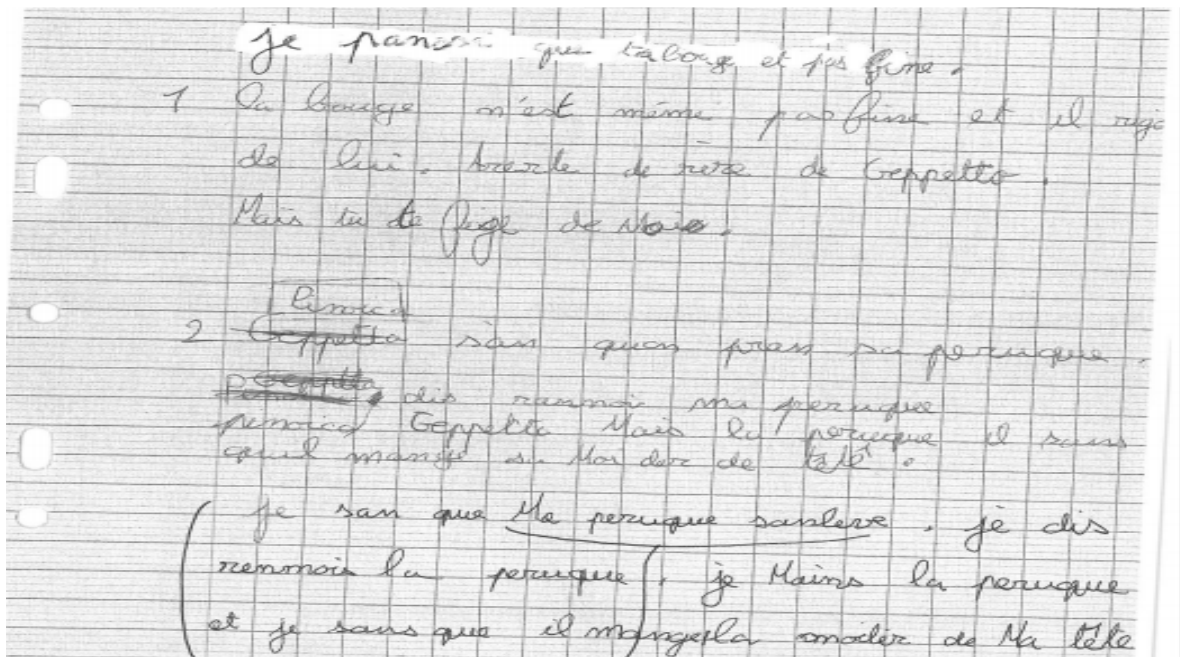 je pansai que ta bouge et pas fine.
1 La bouge n'est même pas fine et il rigo
de lui. de rire de Geppetto.
Mais tu te fige de Moi.
Pinoica
2 Geppetto san quon pran sa peruque.
Geppetto dis rannoi ma peruque
pinoica Geppetto Mais la peruque il sans
quil mange de tete.
je san que Ma peruque sanleve. je dis
renmois la peruque. je Mains la peruque
et je sans que il mange la moder de Ma tête